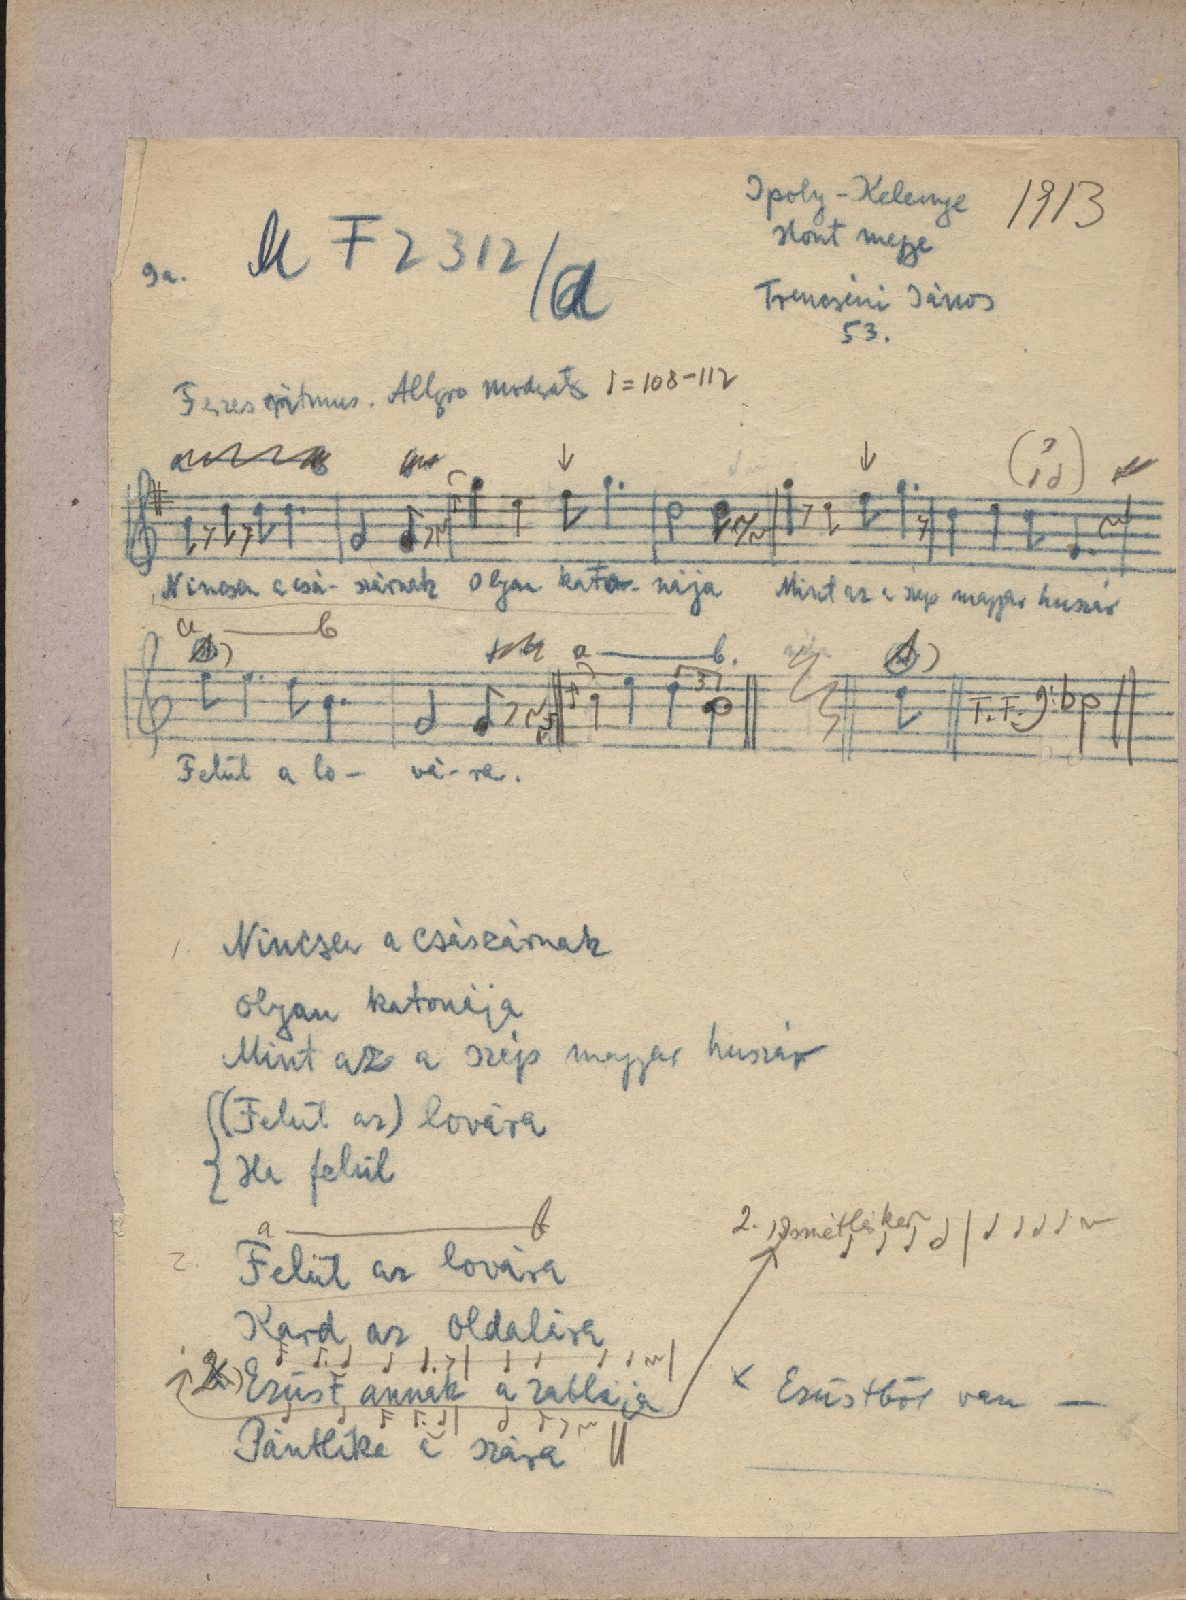 Ipoly-Kelenye 1913
Hont megye
9a. M F 2312/a
Trencséni János
53.
Feszes ritmus. Allgro moderato ♩=108-112
Nincsen a csá- szárnak olyan kato- nája Mint az a szép magyar huszár
a — b
a — b.
3
T. F.
Felül a lo- vá-ra.
1. Nincsen a császárnak
olyan katonája
Mint az a szép magyar huszár
(Felül az) lovára
Ha felül
a — b
2. ismétléskor
2. Felül az lovára
Kard az oldalára
Ezüst annak a zablája
x Ezüstből van —
Pántlika a szára